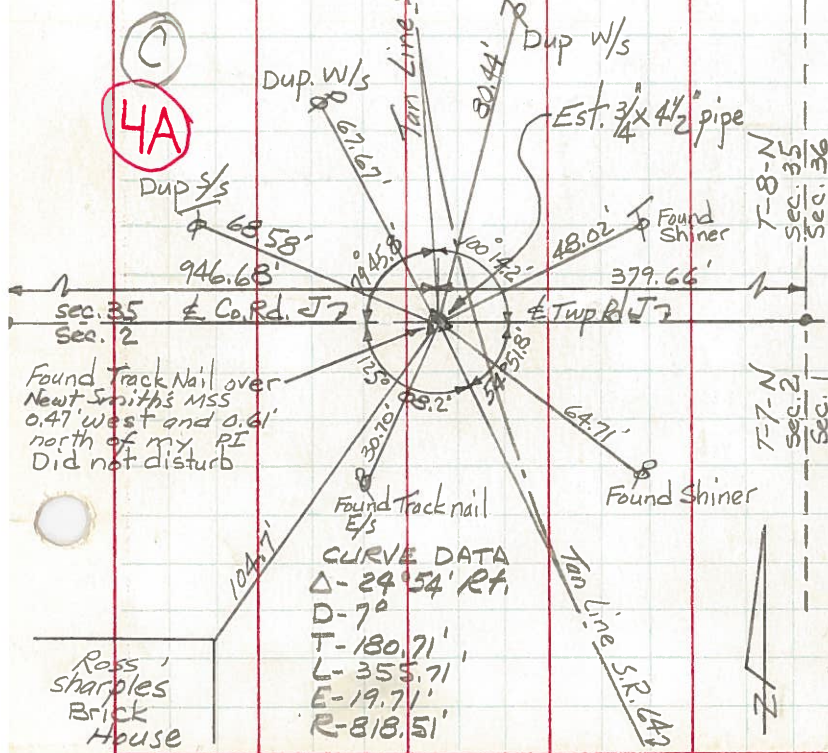 C
4A
Dup. W/s
67.67'
Tan Line
30.44'
Dup W/s
Est. 3/4" x 4 1/2" pipe
Dup S/s
68.58'
48.02'
Found
Shiner
T-8-N
Sec. 35
Sec. 36
79° 45.8'
100° 14.2'
946.68'
379.66'
Sec. 35
Sec. 2
℄ Co. Rd. J7
℄ Twp Rd. J7
125° 08.2'
54° 51.8'
Found Track Nail over
Newt Smith's MSS
0.47' west and 0.61'
north of my PI
Did not disturb
30.70'
64.71'
T-7-N
Sec. 2
Sec. 1
Found Track nail
E/s
Found Shiner
104.7'
CURVE DATA
Δ - 24° 54' Rt.
D - 7°
T - 180.71'
L - 355.71'
E - 19.71'
R - 818.51'
Tan Line S.R. 642
Ross
Sharples
Brick
House
N